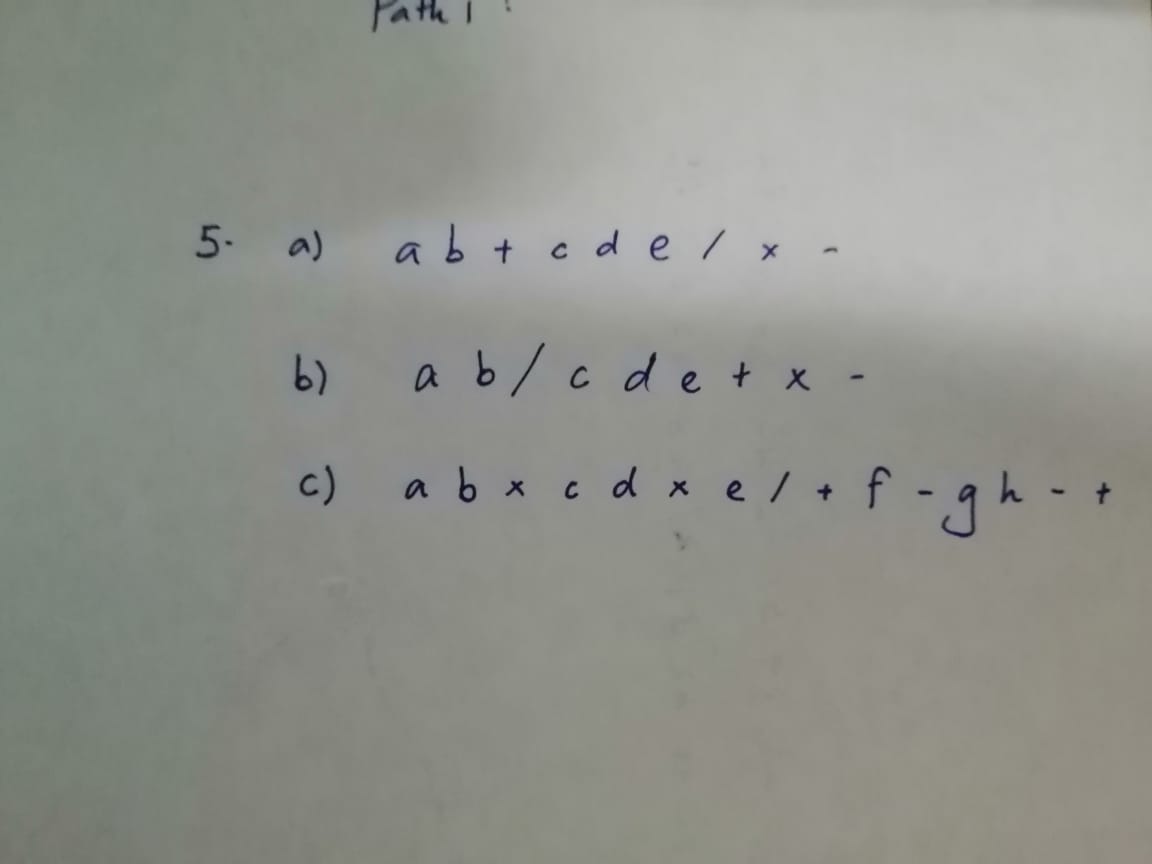 Path 1:
5. a) a b + c d e / x -
b) a b / c d e + x -
c) a b x c d x e / + f - g h - +